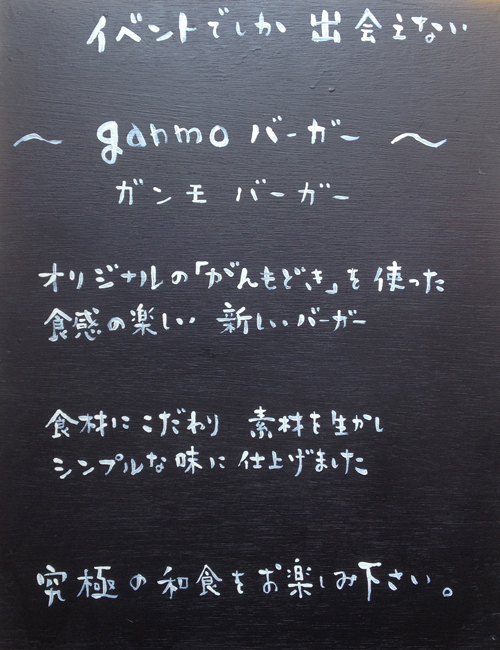 イベントでしか 出会えない
～ ganmo バーガー ～
ガンモ バーガー
オリジナルの「がんもどき」を使った
食感の楽しい 新しいバーガー
食材にこだわり 素材を生かし
シンプルな味に仕上げました
究極の和食をお楽しみ下さい。